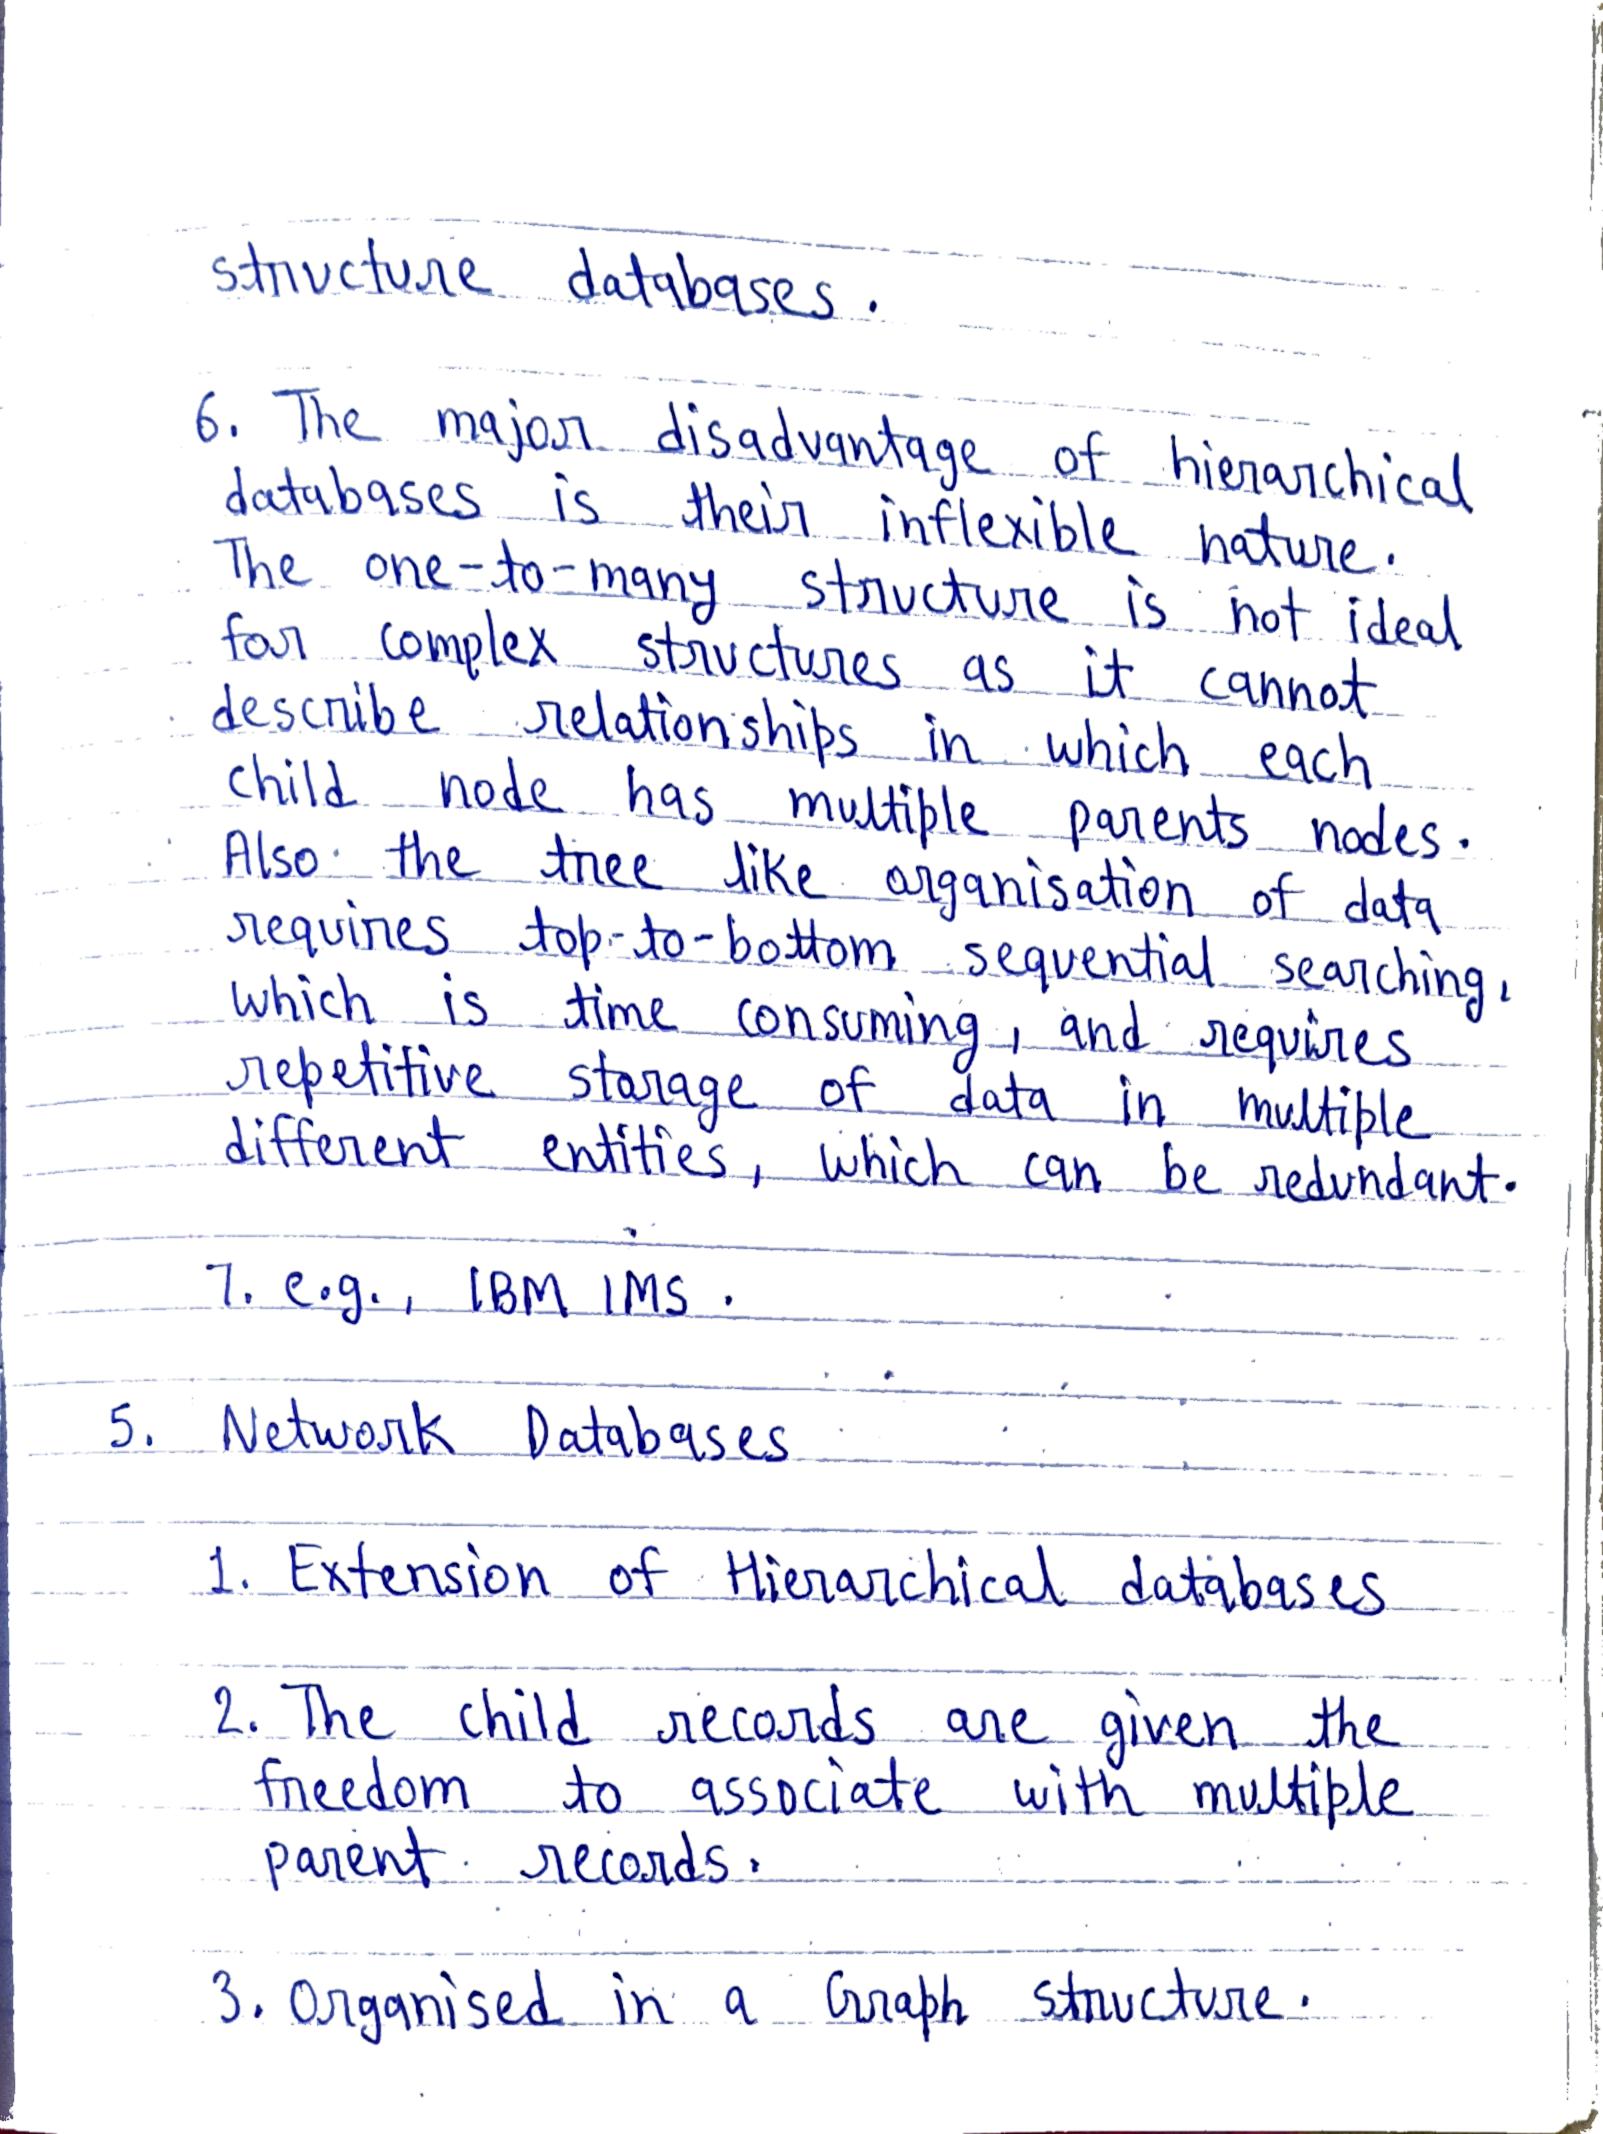 structure databases.
6. The major disadvantage of hierarchical
databases is their inflexible nature.
The one-to-many structure is not ideal
for complex structures as it cannot
describe relationships in which each
child node has multiple parents nodes.
Also the tree like organisation of data
requires top-to-bottom sequential searching,
which is time consuming, and requires
repetitive storage of data in multiple
different entities, which can be redundant.
7. e.g., IBM IMS.
5. Network Databases
1. Extension of Hierarchical databases
2. The child records are given the
freedom to associate with multiple
parent records.
3. Organised in a Graph structure.